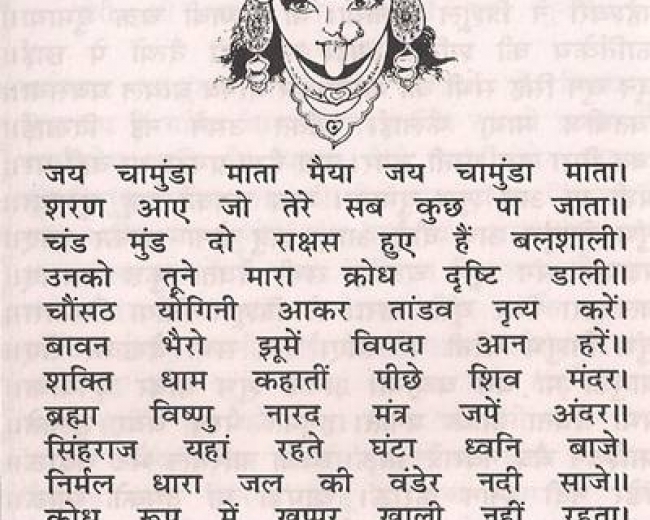 जय चामुंडा माता मैया जय चामुंडा माता।
शरण आए जो तेरे सब कुछ पा जाता॥
चंड मुंड दो राक्षस हुए हैं बलशाली।
उनको तूने मारा क्रोध दृष्टि डाली॥
चौंसठ योगिनी आकर तांडव नृत्य करें।
बावन भैरो झूमें विपदा आन हरें॥
शक्ति धाम कहातीं पीछे शिव मंदर।
ब्रह्मा विष्णु नारद मंत्र जपें अंदर॥
सिंहराज यहां रहते घंटा ध्वनि बाजे।
निर्मल धारा जल की वंडेर नदी साजे॥
क्रोध रूप में खप्पर खाली नहीं रहता।